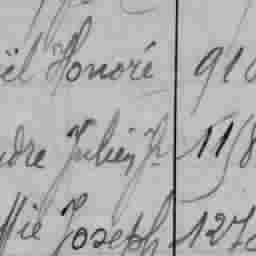 ël Honoré 910
dre Julien Jr 1158
llie Joseph 1270